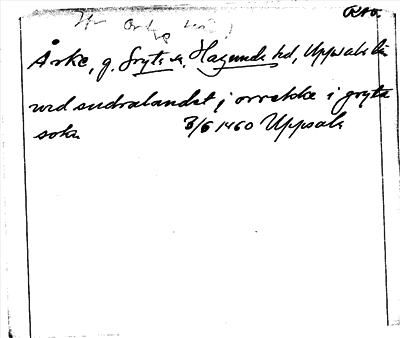 Årke, g. Gryta sn, Hagunda hd, Uppsala län
wed sudralandet j orrekke i gryta
sokn 3/6 1460 Uppsala